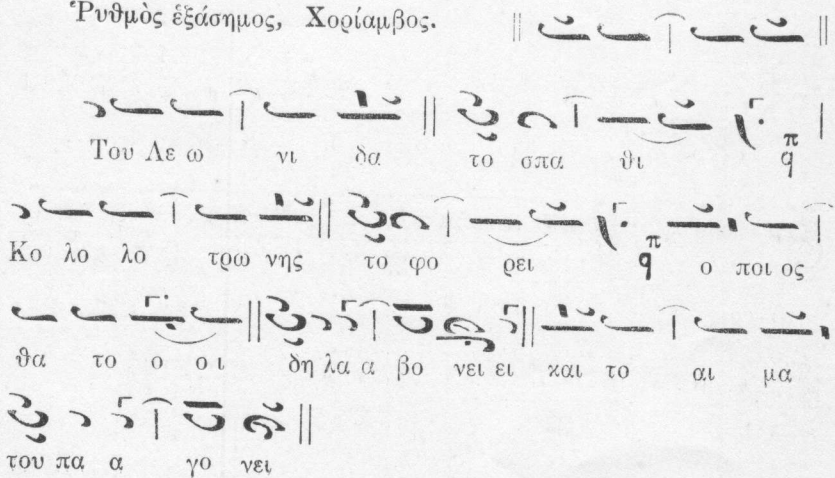 Ῥυθμὸς ἑξάσημος, Χορίαμβος.
Του Λε ω νι δα το σπα θι π q
Κο λο λο τρω νης το φο ρει π q ο ποι ος
θα το ο οι δη λα α βο νει ει και το αι μα
του πα α γο νει